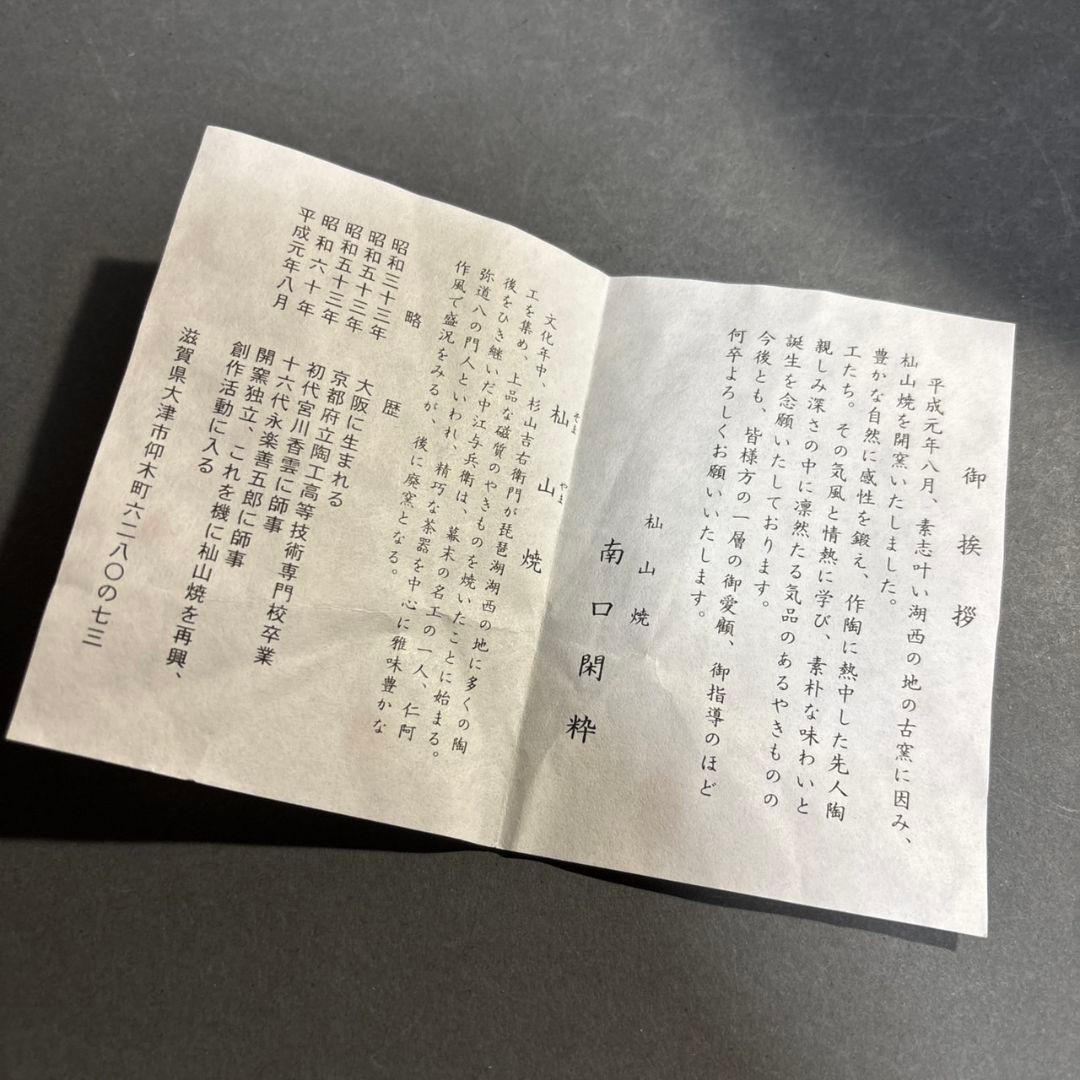 御挨拶
平成元年八月、素志叶い湖西の地の古窯に因み、
杣山焼を開窯いたしました。
豊かな自然に感性を鍛え、作陶に熱中した先人陶
工たち。その気風と情熱に学び、素朴な味わいと
親しみ深さの中に凛然たる気品のあるやきものの
誕生を念願いたしております。
今後とも、皆様方の一層の御愛顧、御指導のほど
何卒よろしくお願いいたします。
杣山焼
南口閑粋
杣山焼
そま やま
文化年中、杉山吉右衛門が琵琶湖湖西の地に多くの陶
工を集め、上品な磁質のやきものを焼いたことに始まる。
後をひき継いだ中江与兵衛は、幕末の名工の一人、仁阿
弥道八の門人といわれ、精巧な茶器を中心に雅味豊かな
作風で盛況をみるが、後に廃窯となる。
略歴
昭和三十三年 大阪に生まれる
昭和五十三年 京都府立陶工高等技術専門校卒業
昭和五十三年 初代宮川香雲に師事
昭和六十年 十六代永楽善五郎に師事
平成元年八月 開窯独立、これを機に杣山焼を再興、
創作活動に入る
滋賀県大津市仰木町六二八〇の七三